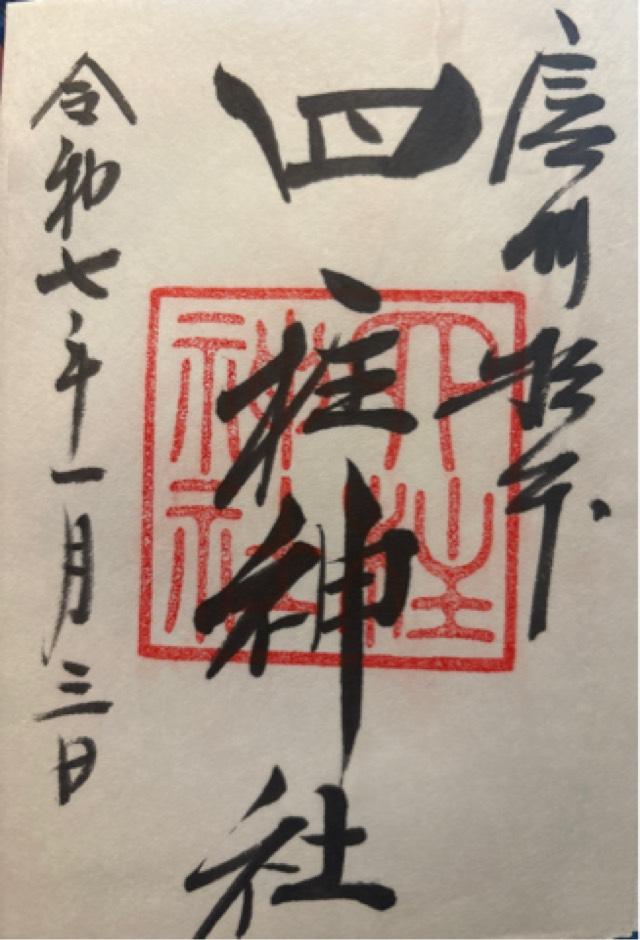 信州松本
四柱神社
四柱神社
令和七年一月三日